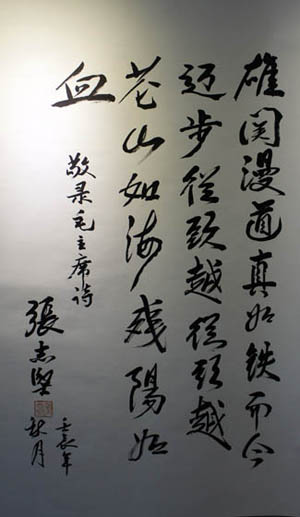 雄関漫道真如铁而今
迈步從頭越從頭越
苍山如海残陽如
血
敬录毛主席诗
張志堅
壬辰年
秋月